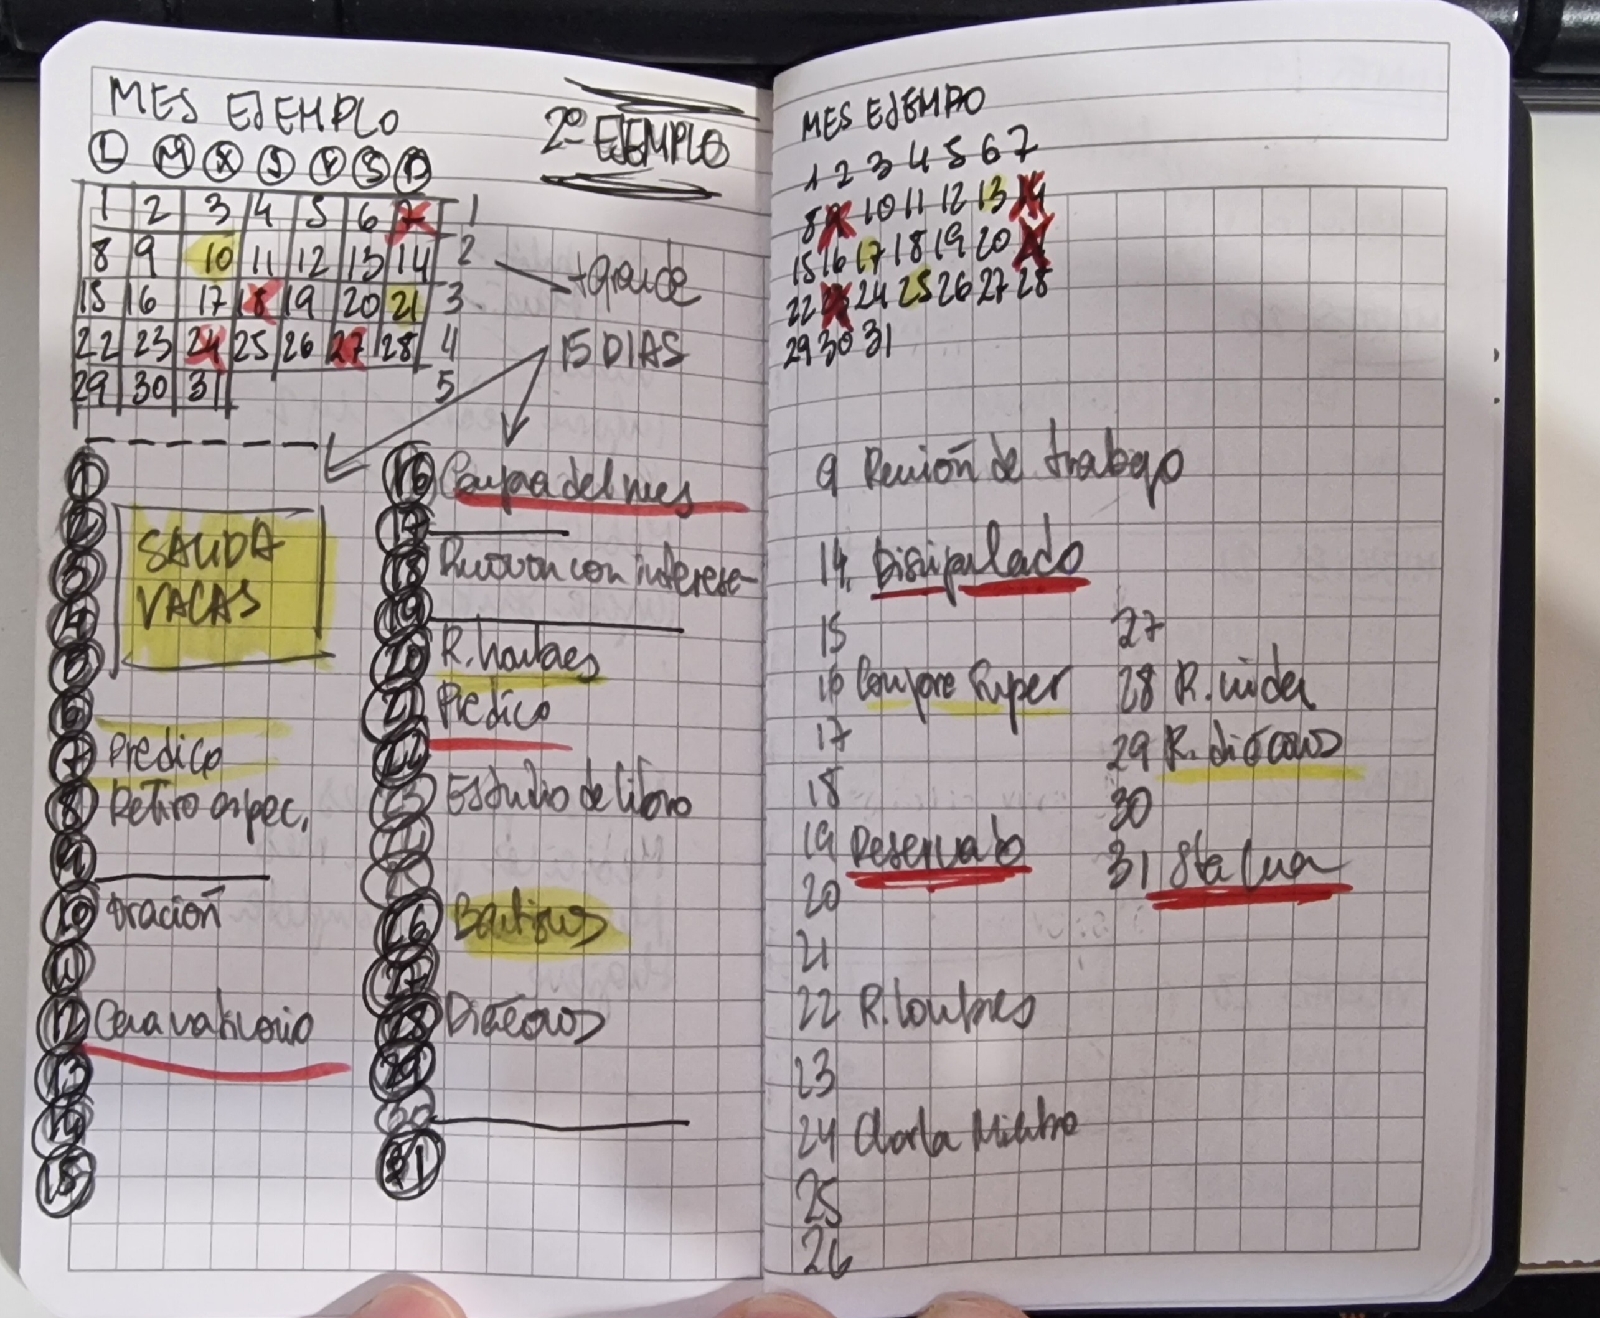 MES EJEMPLO
2º EJEMPLO
L M X J V S D
1 2 3 4 5 6 7 1
8 9 10 11 12 13 14 2
15 16 17 18 19 20 21 3
22 23 24 25 26 27 28 4
29 30 31 5
+ Grande
15 DIAS
1
2 SALIDA
3
4 VACAS
5
6
7 Predico
8 Retiro espec.
9
10 Oración
11
12
13
14
15
16 Compra del mes
17
18 Reunion con interese-
19
20 R. hombres
21 Predico
22
23 Estudio de libro
24
25
26 Bautizos
27
28 Diáconos
29
30
31
MES EJEMPO
1 2 3 4 5 6 7
8 9 10 11 12 13 14
15 16 17 18 19 20 21
22 23 24 25 26 27 28
29 30 31
9 Reunión de trabajo
14. Disipulado
15
16 Compre Super
17
18
19 Reservado
20
21
22 R. hombres
23
24 Charla
25
26
27
28 R.
29 R. diáconos
30
31 Sta Cena